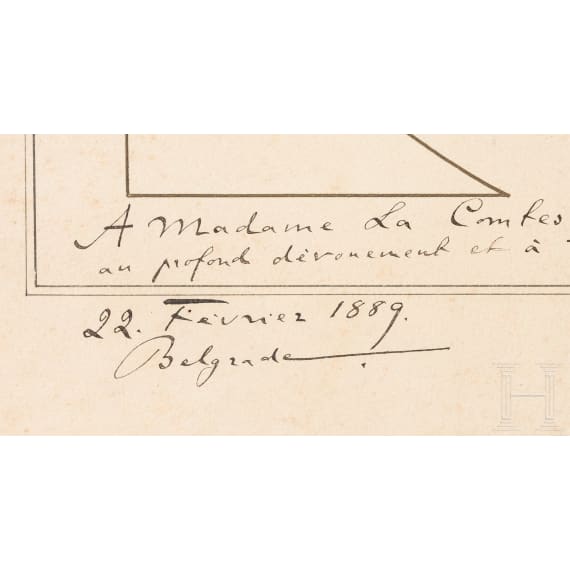 A Madame La Comtes
au profond dévouement et à
22. Février 1889.
Belgrade
H